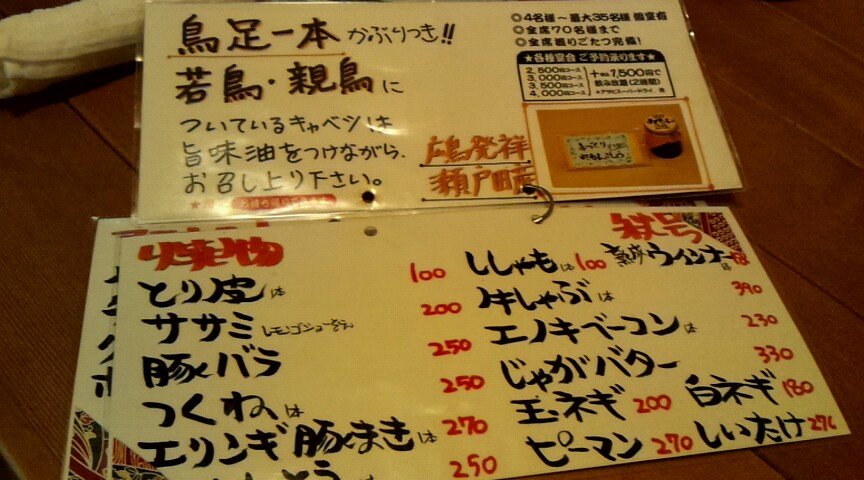 鳥足一本かぶりつき!!
若鳥・親鳥に
ついているキャベツは
旨味油をつけながら、
お召し上り下さい。
広島発祥
瀬戸田産
◎4名様〜最大35名様 個室有
◎全席70名様まで
◎全席掘りごたつ完備!
★各種宴会 ご予約承ります★
2,500円コース
3,000円コース
3,500円コース
4,000円コース
+税1,500円で
飲み放題(2時間)
*アサヒスーパードライ
とり皮は 100
ササミ 200
豚バラ 250
つくねは 250
エリンギ豚まきは 270
250
ししゃもは 100
ウインナー
牛しゃぶは 390
エノキベーコンは 230
じゃがバター 330
玉ネギ 200
白ネギ 180
ピーマン 270
しいたけ